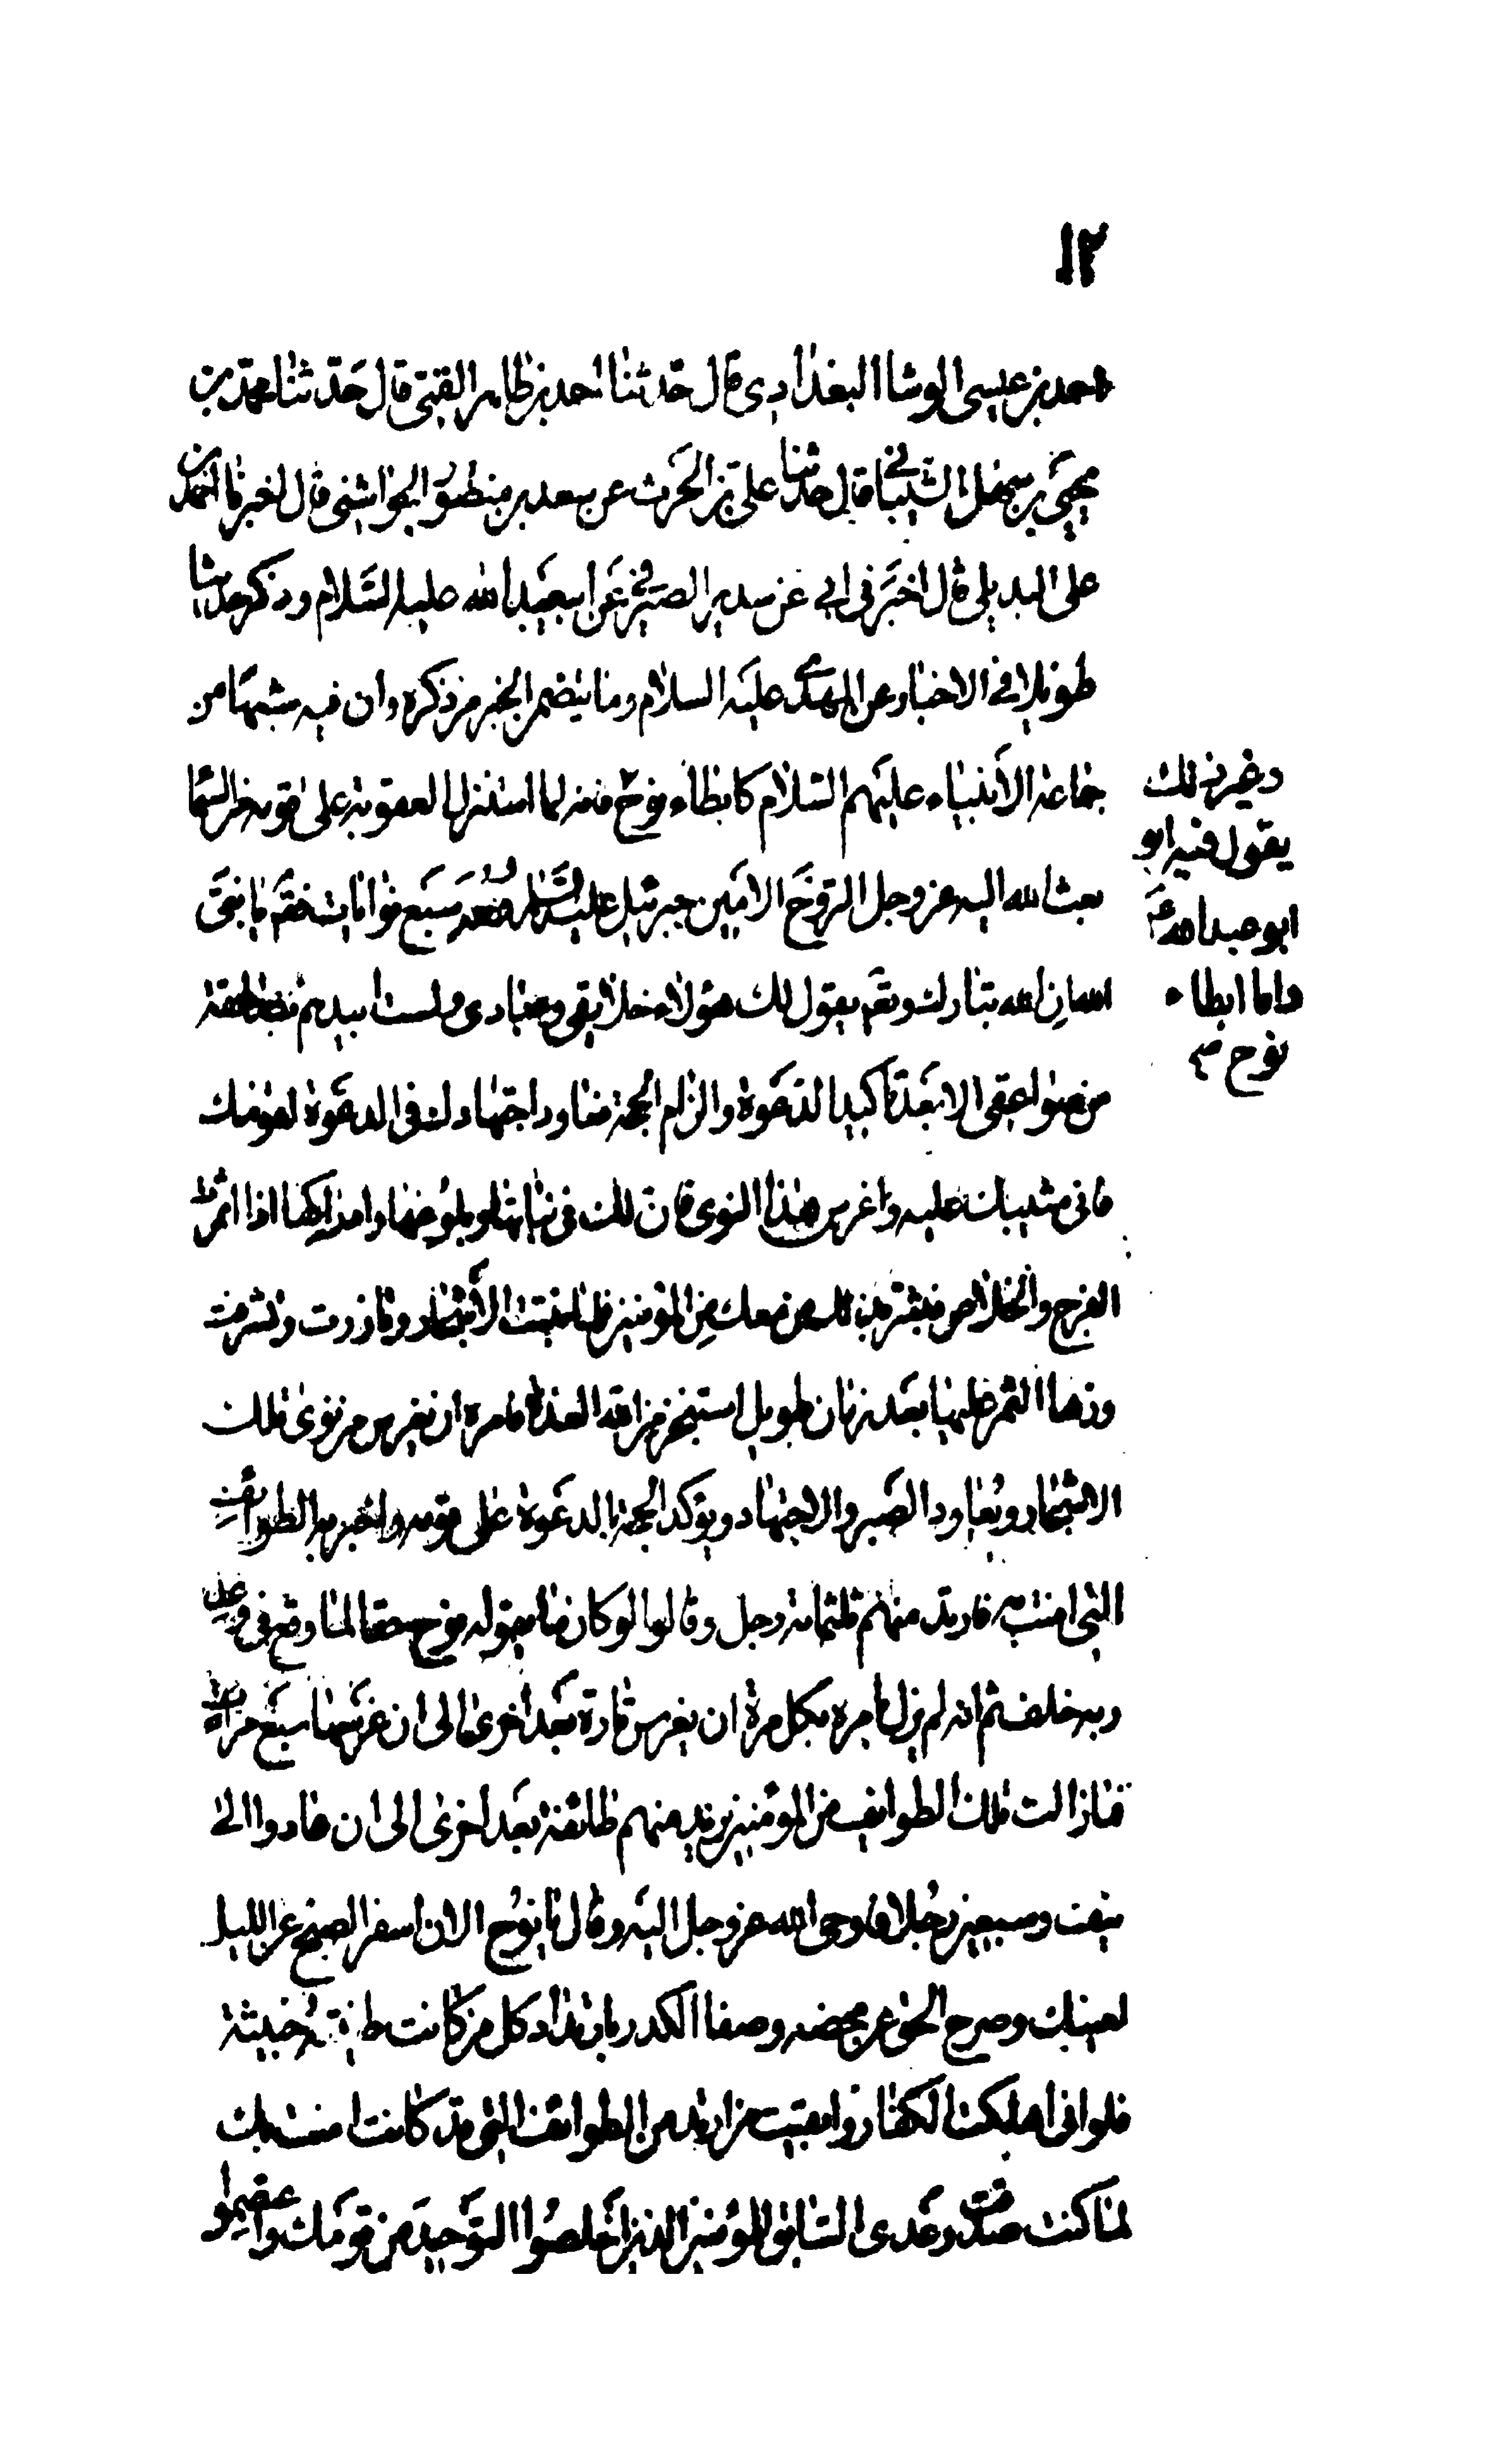 ١٢
احمد بن عيسى الوشا البغدادى قال حدثنا احمد بن طاهر القمى قال حدثنا محمد بن
يحيى بن سهل الشيبانى قال حدثنا على بن الحرث عن سعد بن منصور الجواشنى قال اخبرنا احمد بن
على البديلى قال اخبرنى ابى عن سدير الصيرفى عن ابيعبد الله عليه السلام وذكر حديثا
طويلا فى الاخبار عن المهدى عليه السلام وما يتضمن الخبر من ذكره وان فيه شبها من
جماعة الأنبياء عليهم السلام كابطاء نوح فانه لما استنزل العقوبة على قومه من السماء
بعث الله اليه عز وجل الروح الامين جبرئيل عليه السلام معه سبع نوايات فقال يا نبى
الله ان الله تبارك وتعم يقول لك هؤلاء خلايقى وعبادى ولست ابيدهم بصاعقة
من صواعقى الا بعد تاكيد الدعوة والزام الحجة فعاود اجتهادك فى الدعوة لقومك
فانى مثيبك عليه واغرس هذا النوى فان لك فى نباتها وبلوغها وادراكها اذا اثمرت
الفرج والخلاص فبشر بذلك من معك من المؤمنين فلما نبتت الأشجار وتازرت وتشرفت
وزها الثمر عليها بعد زمان طويل استنجز من الله العدة فامره ان يغرس من نوى تلك
الاشجار ويعاود الصبر والاجتهاد ويؤكد الحجة بالدعوة على قومه واخبر به الطوائف
التى امنت به فارتد منهم ثلثمائة رجل وقالوا لو كان ما يقوله نوح حقا لما وقع فى وعد
ربه خلف ثم انه لم يزل يامره بكل مرة ان يغرس تارة بعد اخرى الى ان غرسها سبع مرات
فما زالت تلك الطوايف من المؤمنين يرتد منهم طائفة بعد اخرى الى ان عادوا الى
نيف وسبعين رجلا فاوحى الله عز وجل اليه وقال يا نوح الان اسفر الصبح عن الليل
لعينك وصرح الحق عن محضه وصفا الكدر بارتداد كل من كانت طينته خبيثة
فلو انى اهلكت الكفار وابقيت من ارتد من الطوائف التى قد كانت امنت بك
لما كنت صدقت وعدى السابق للمؤمنين الذين اخلصوا التوحيد من قومك واعتصموا
وغير ذلك
يقول فيه ابو
ابو عبد الله ع
واما ابطاء
نوح